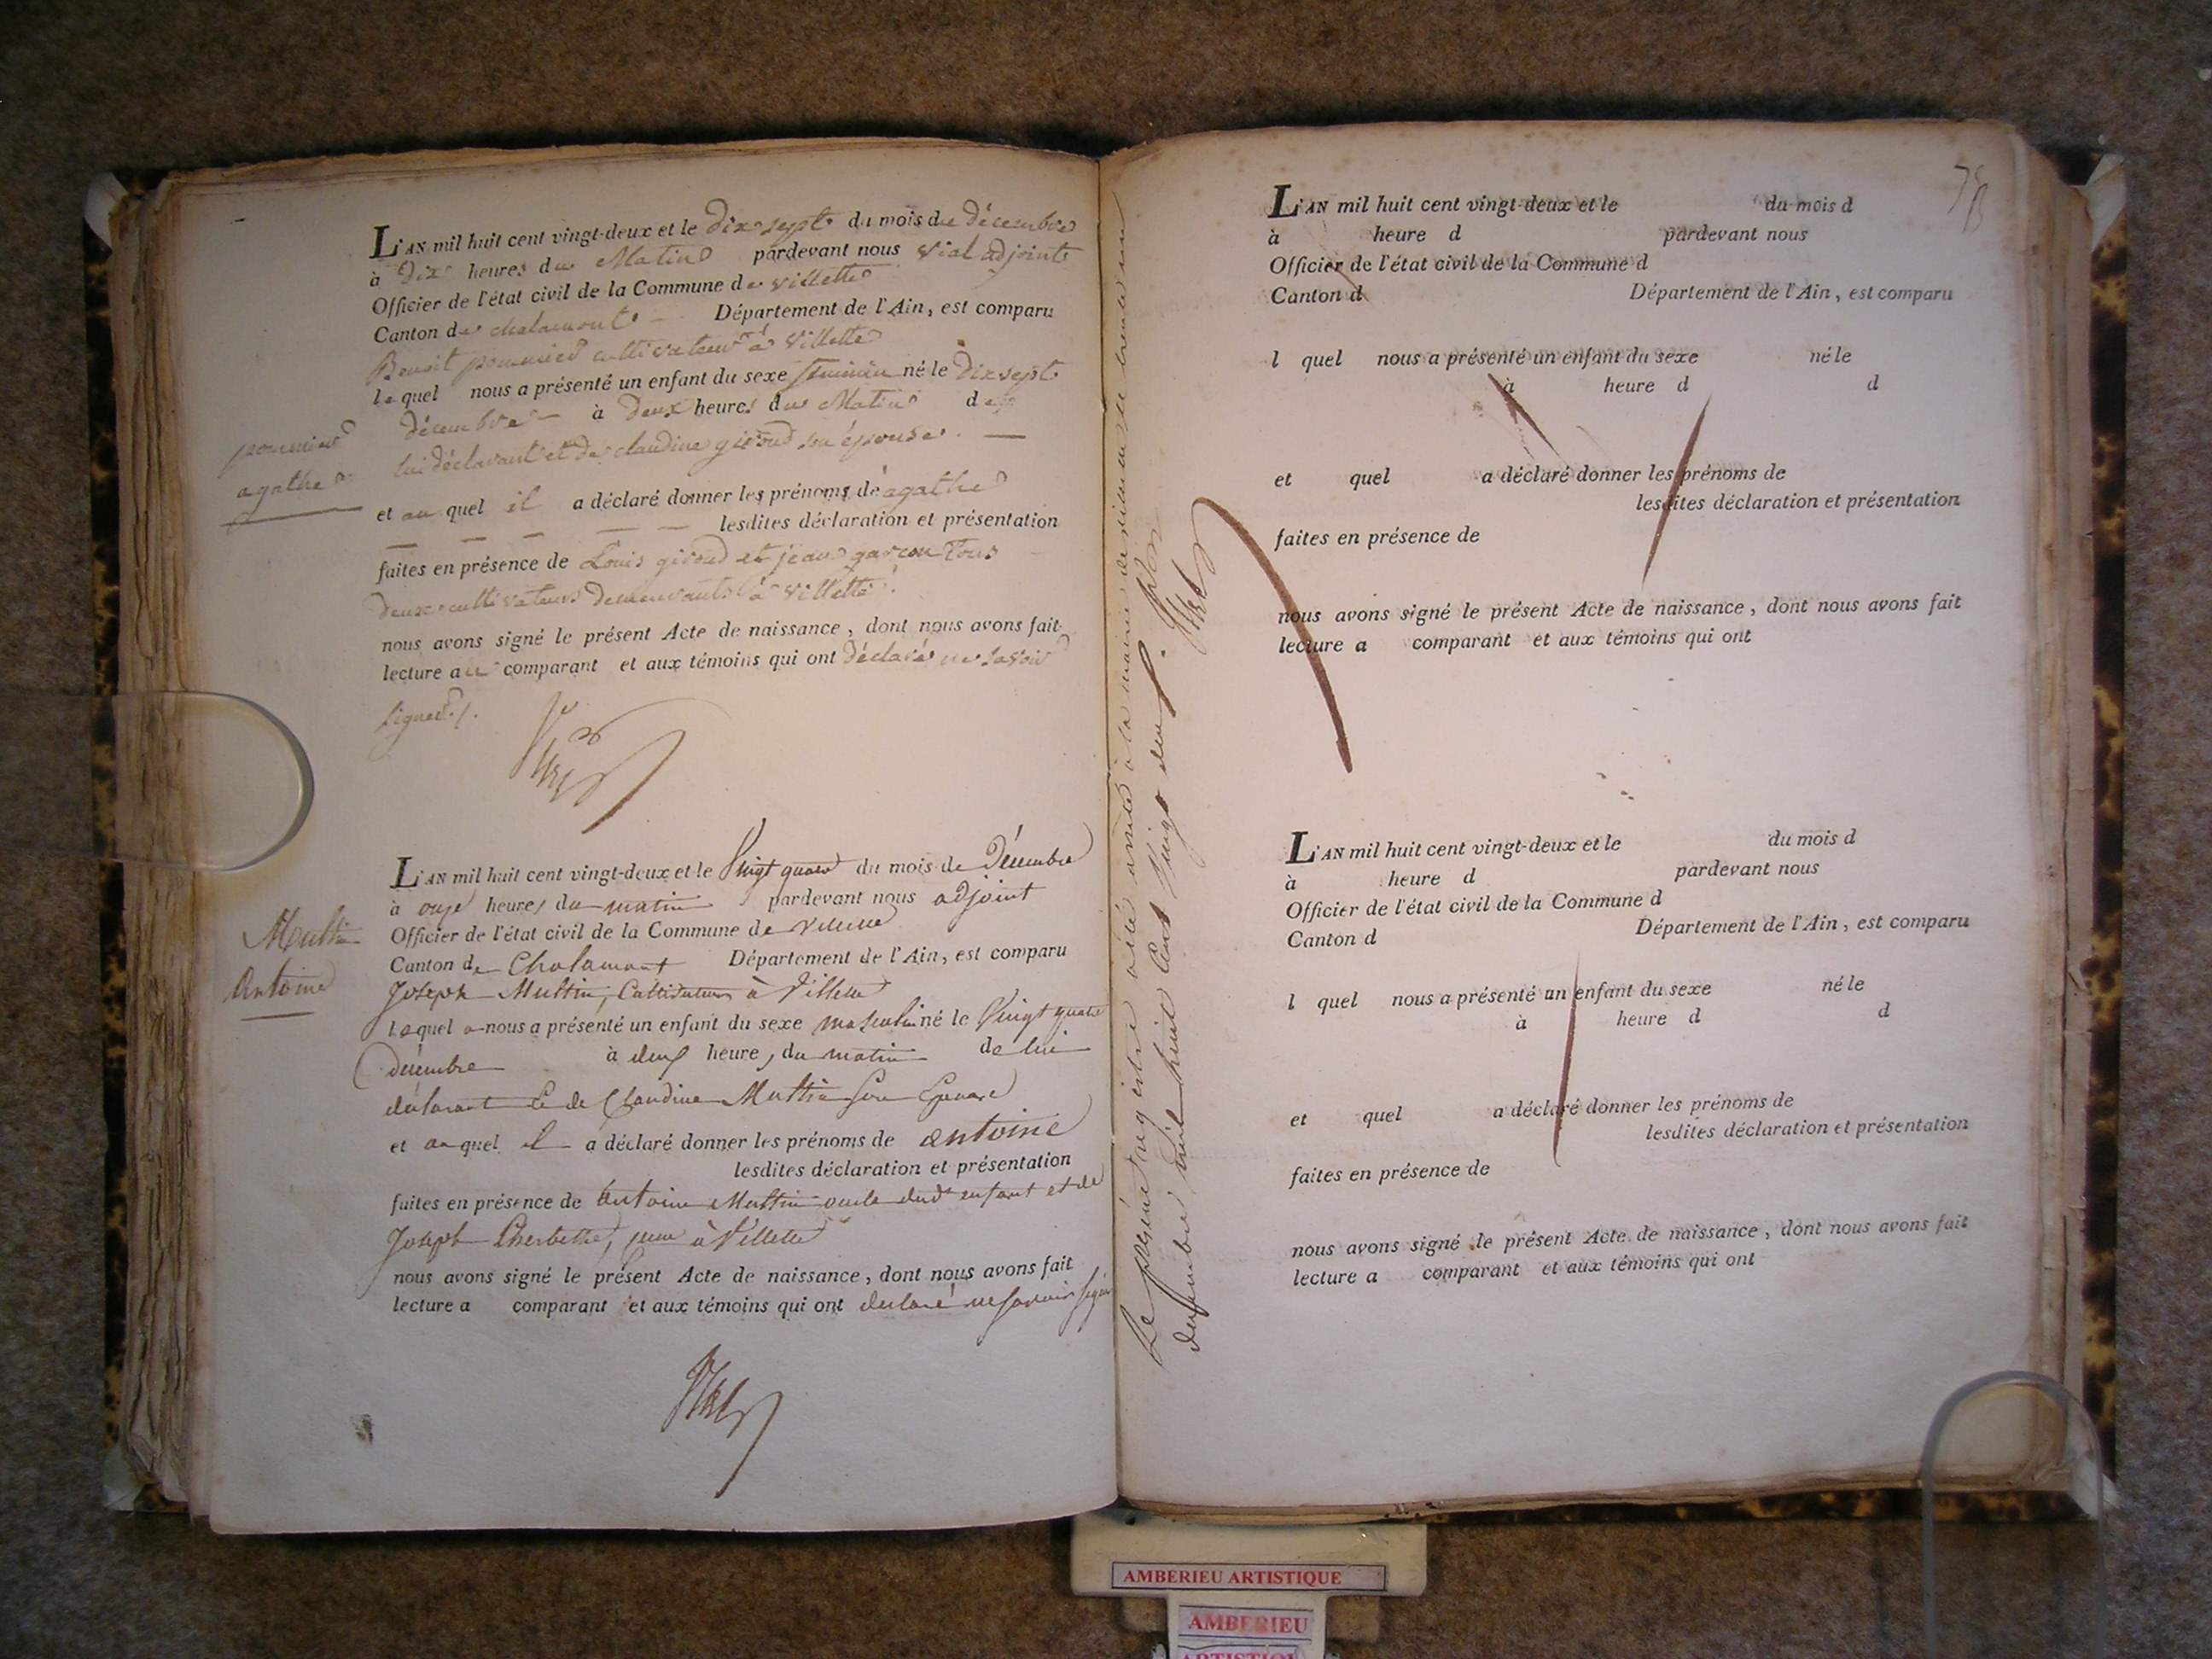 L'AN mil huit cent vingt-deux et le dix sept du mois de décembre
à dix heures du Matin pardevant nous Vial adjoint
Officier de l'état civil de la Commune de villette
Canton de chalamont Département de l'Ain, est comparu
Benoit pommier cultivateur à Villette
lequel nous a présenté un enfant du sexe feminin né le dix sept
décembre à deux heures du Matin de
pommier
agathe
lui déclarant et de claudine giroud son épouse
et au quel il a déclaré donner les prénoms de agathe
lesdites déclaration et présentation
faites en présence de Louis giroud et jean garçon tous
deux cultivateurs demeurants à Villette
nous avons signé le présent Acte de naissance, dont nous avons fait
lecture au comparant et aux témoins qui ont déclaré ne savoir
signer ./.
Vial
L'AN mil huit cent vingt-deux et le Vingt quatre du mois de Décembre
à onze heures du matin pardevant nous adjoint
Officier de l'état civil de la Commune de Villette
Canton de Chalamont Département de l'Ain, est comparu
Muttin
Antoine
Joseph Muttin, Cultivateur à Villette
lequel a nous a présenté un enfant du sexe masculin né le Vingt quatre
décembre à deux heures du matin de lui
déclarant et de Claudine Muttin son Epouse
et au quel il a déclaré donner les prénoms de antoine
lesdites déclaration et présentation
faites en présence de antoine Muttin oncle dudt enfant et de
Joseph à Villette
nous avons signé le présent Acte de naissance, dont nous avons fait
lecture a comparant et aux témoins qui ont declaré ne savoir signer
Vial
Le présent registre a été arrêté à la mairie de Villette le trente un
decembre mil huit Cent Vingt deux.
Vial
78
L'AN mil huit cent vingt-deux et le du mois d
à heure d pardevant nous
Officier de l'état civil de la Commune d
Canton d Département de l'Ain, est comparu
l quel nous a présenté un enfant du sexe né le
à heure d d
et quel a déclaré donner les prénoms de
lesdites déclaration et présentation
faites en présence de
nous avons signé le présent Acte de naissance, dont nous avons fait
lecture a comparant et aux témoins qui ont
L'AN mil huit cent vingt-deux et le du mois d
à heure d pardevant nous
Officier de l'état civil de la Commune d
Canton d Département de l'Ain, est comparu
l quel nous a présenté un enfant du sexe né le
à heure d d
et quel a déclaré donner les prénoms de
lesdites déclaration et présentation
faites en présence de
nous avons signé le présent Acte de naissance, dont nous avons fait
lecture a comparant et aux témoins qui ont
AMBERIEU ARTISTIQUE
AMBERIEU
ARTISTIQUE